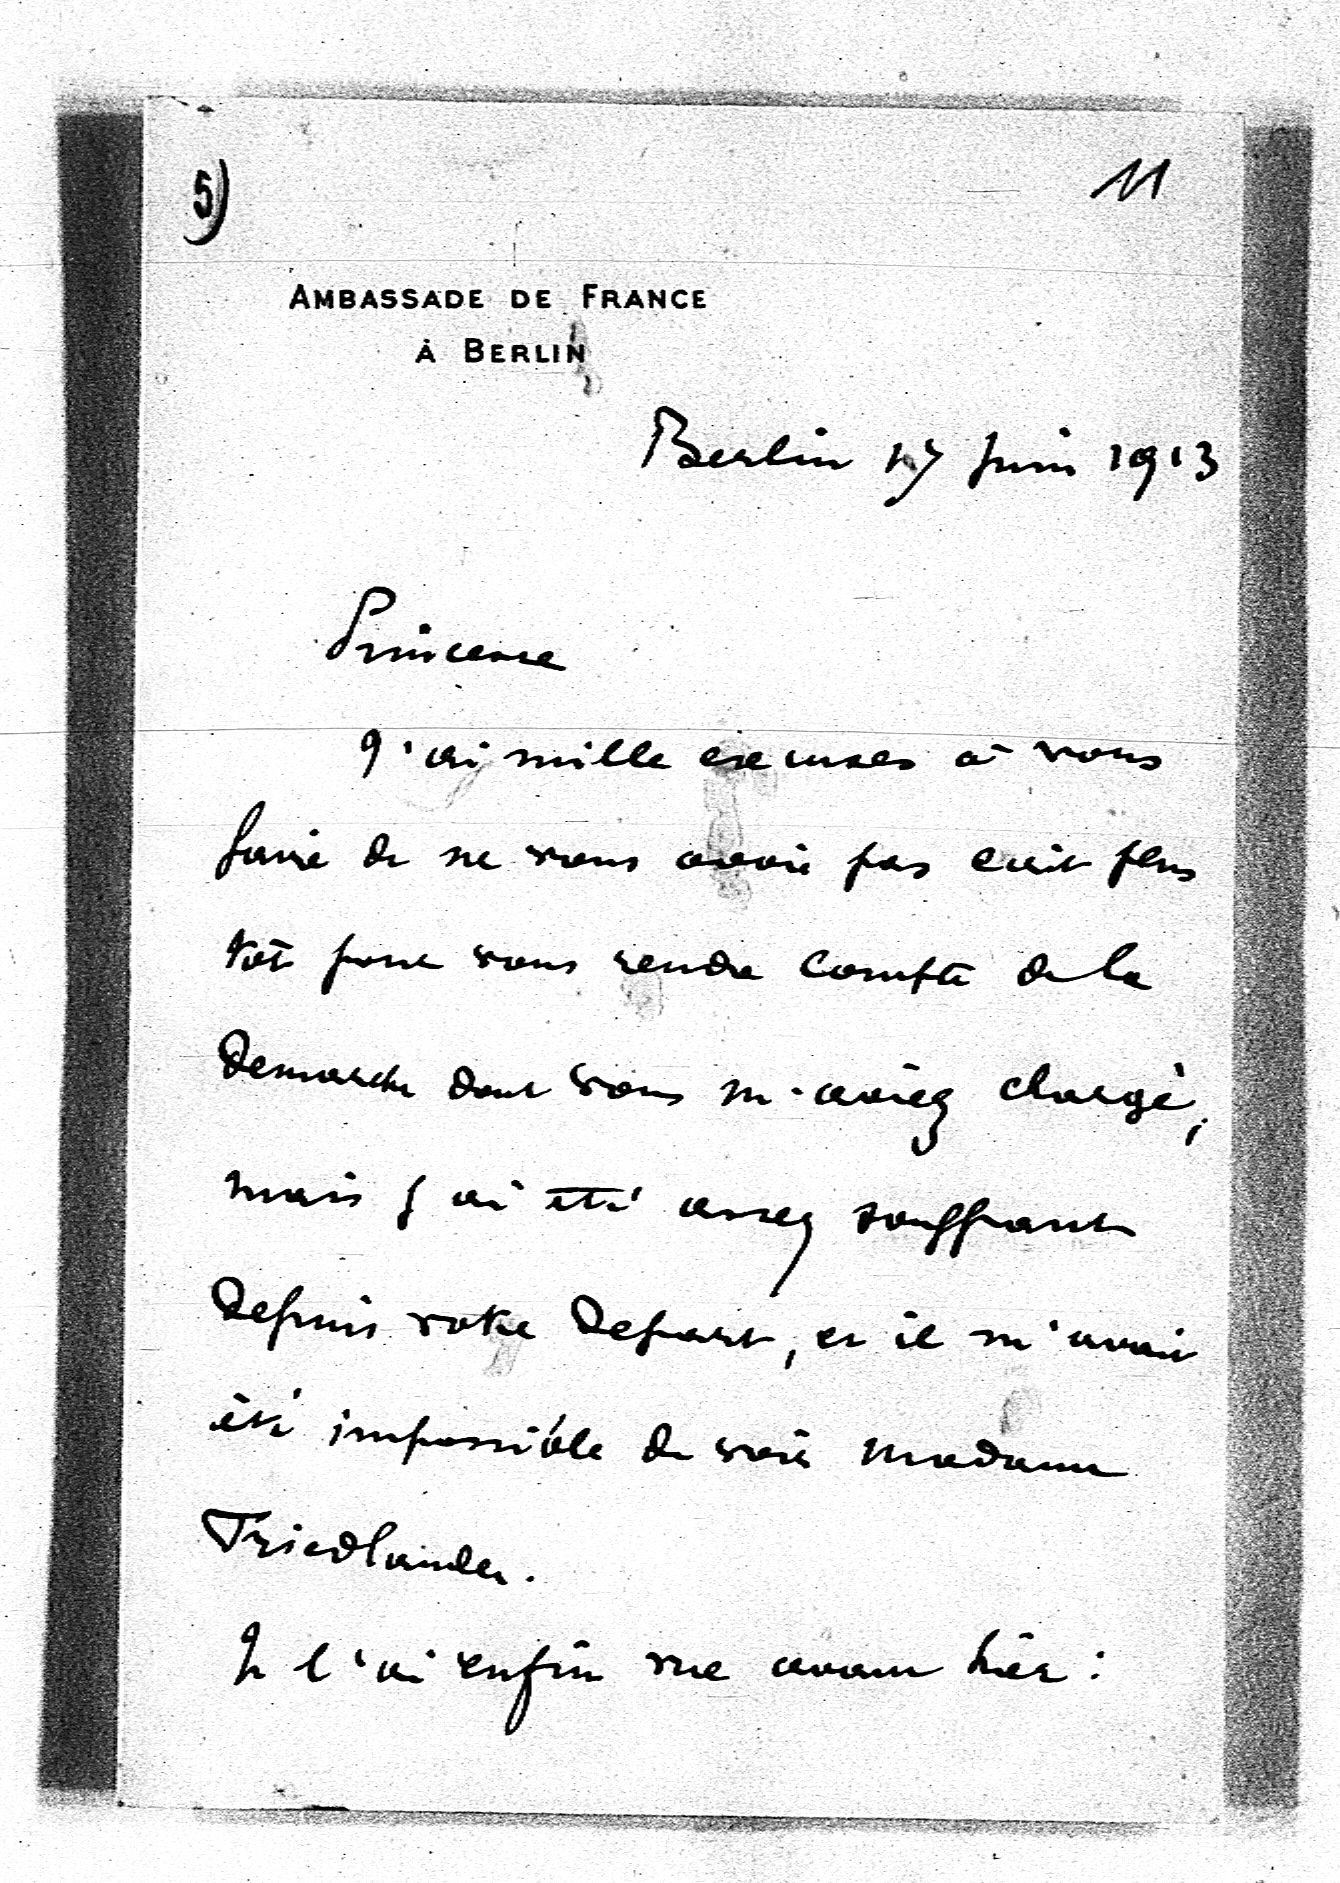 5)
11
AMBASSADE DE FRANCE
À BERLIN
Berlin 17 Juin 1913
Princesse
J'ai mille excuses à vous
faire de ne vous avoir pas écrit plus
tôt pour vous rendre compte de la
démarche dont vous m'aviez chargé,
mais j'ai été assez souffrant
depuis votre départ, et il m'avait
été impossible de voir Madame
Friedlander.
Je l'ai enfin vue avant hier :